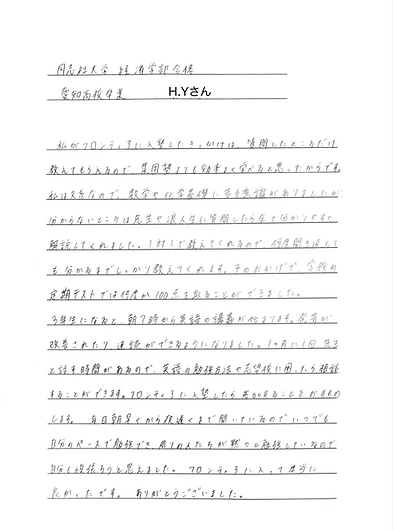 同志社大学 経済学部合格
愛知高校卒業 H.Yさん
私がフロンティアに入塾したきっかけは、質問したところだけ
教えてもらえるので、集団塾よりも効率よく学べると思ったからです。
私は文系なので、数学や化学基礎に苦手意識がありましたが
分からないところは先生や浪人生に質問したら全て分かりやすく
解説してくれました。1対1で教えてくれるので、何度聞き返して
も分かるまでしっかり教えてくれます。そのおかげで、学校の
定期テストでは何度か100点を取ることができました。
3年生になると、朝7時から英語の講義が始まります。発音が
改善されたり 速読ができるようになりました。1ヶ月に1回、先生
と話す時間があるので、英語の勉強方法や志望校に困ったら相談
することができます。フロンティアに入塾したら参加することをお勧め
します。毎日朝早くから夜遅くまで開いているのでいつでも
自分のペースで勉強でき、周りの人たちが黙々と勉強しているので
自分も頑張ろうと思えました。フロンティアに入って本当に
良かったです。ありがとうございました。